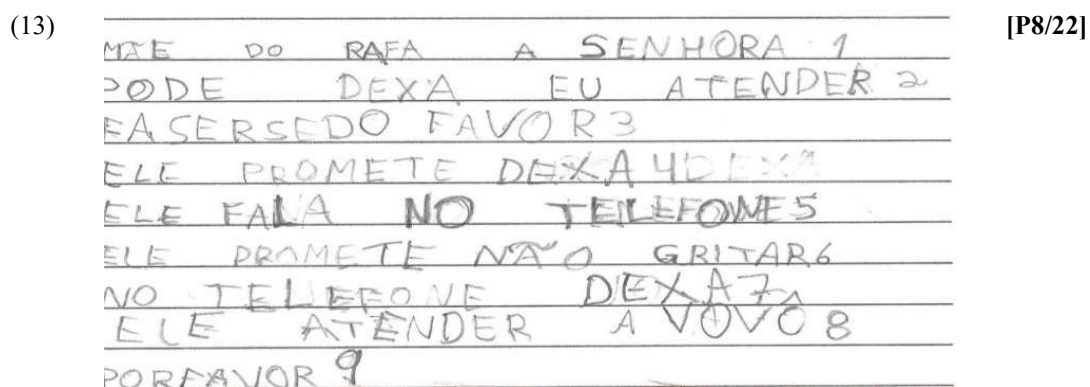 (13) [P8/22]
MÃE DO RAFA A SENHORA 1
PODE DEXA EU ATENDER 2
EASERSEDO FAVOR 3
ELE PROMETE DEXA 4 DEXA
ELE FALA NO TEILEFONE 5
ELE PROMETE NÃO GRITAR 6
NO TELEFONE DEXA 7
ELE ATENDER A VOVÔ 8
PORFAVOR 9